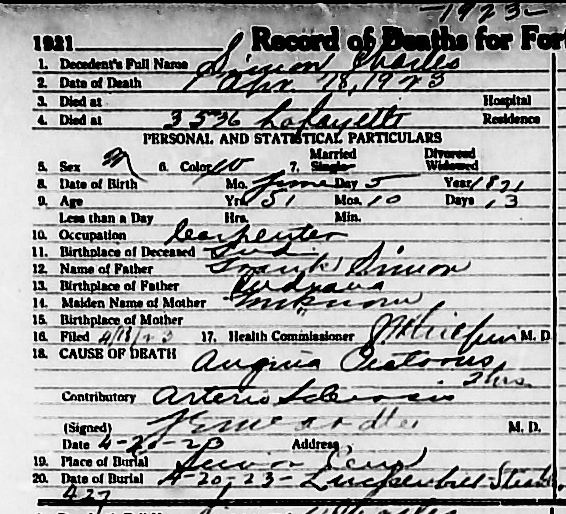 -1923-
1921 Record of Deaths for Fort
1. Decedent's Full Name Simon Charles
2. Date of Death Apr. 18, 1923
3. Died at Hospital
4. Died at 3526 Lafayette Residence
PERSONAL AND STATISTICAL PARTICULARS
5. Sex M 6. Color W 7. Married Single Divorced Widowed
8. Date of Birth Mo. June Day 5 Year 1821
9. Age Yrs 51 Mos. 10 Days 13
Less than a Day Hrs. Min.
10. Occupation Carpenter
11. Birthplace of Deceased Ind.
12. Name of Father Frank Simon
13. Birthplace of Father Indiana
14. Maiden Name of Mother Unknown
15. Birthplace of Mother "
16. Filed 4/18/23 17. Health Commissioner M. D.
18. CAUSE OF DEATH Angina Pectoris
2 hrs.
Contributory Arterio Sclerosis
(Signed) M. D.
Date 4-20-23 Address
19. Place of Burial
20. Date of Burial 4-20-23-
427